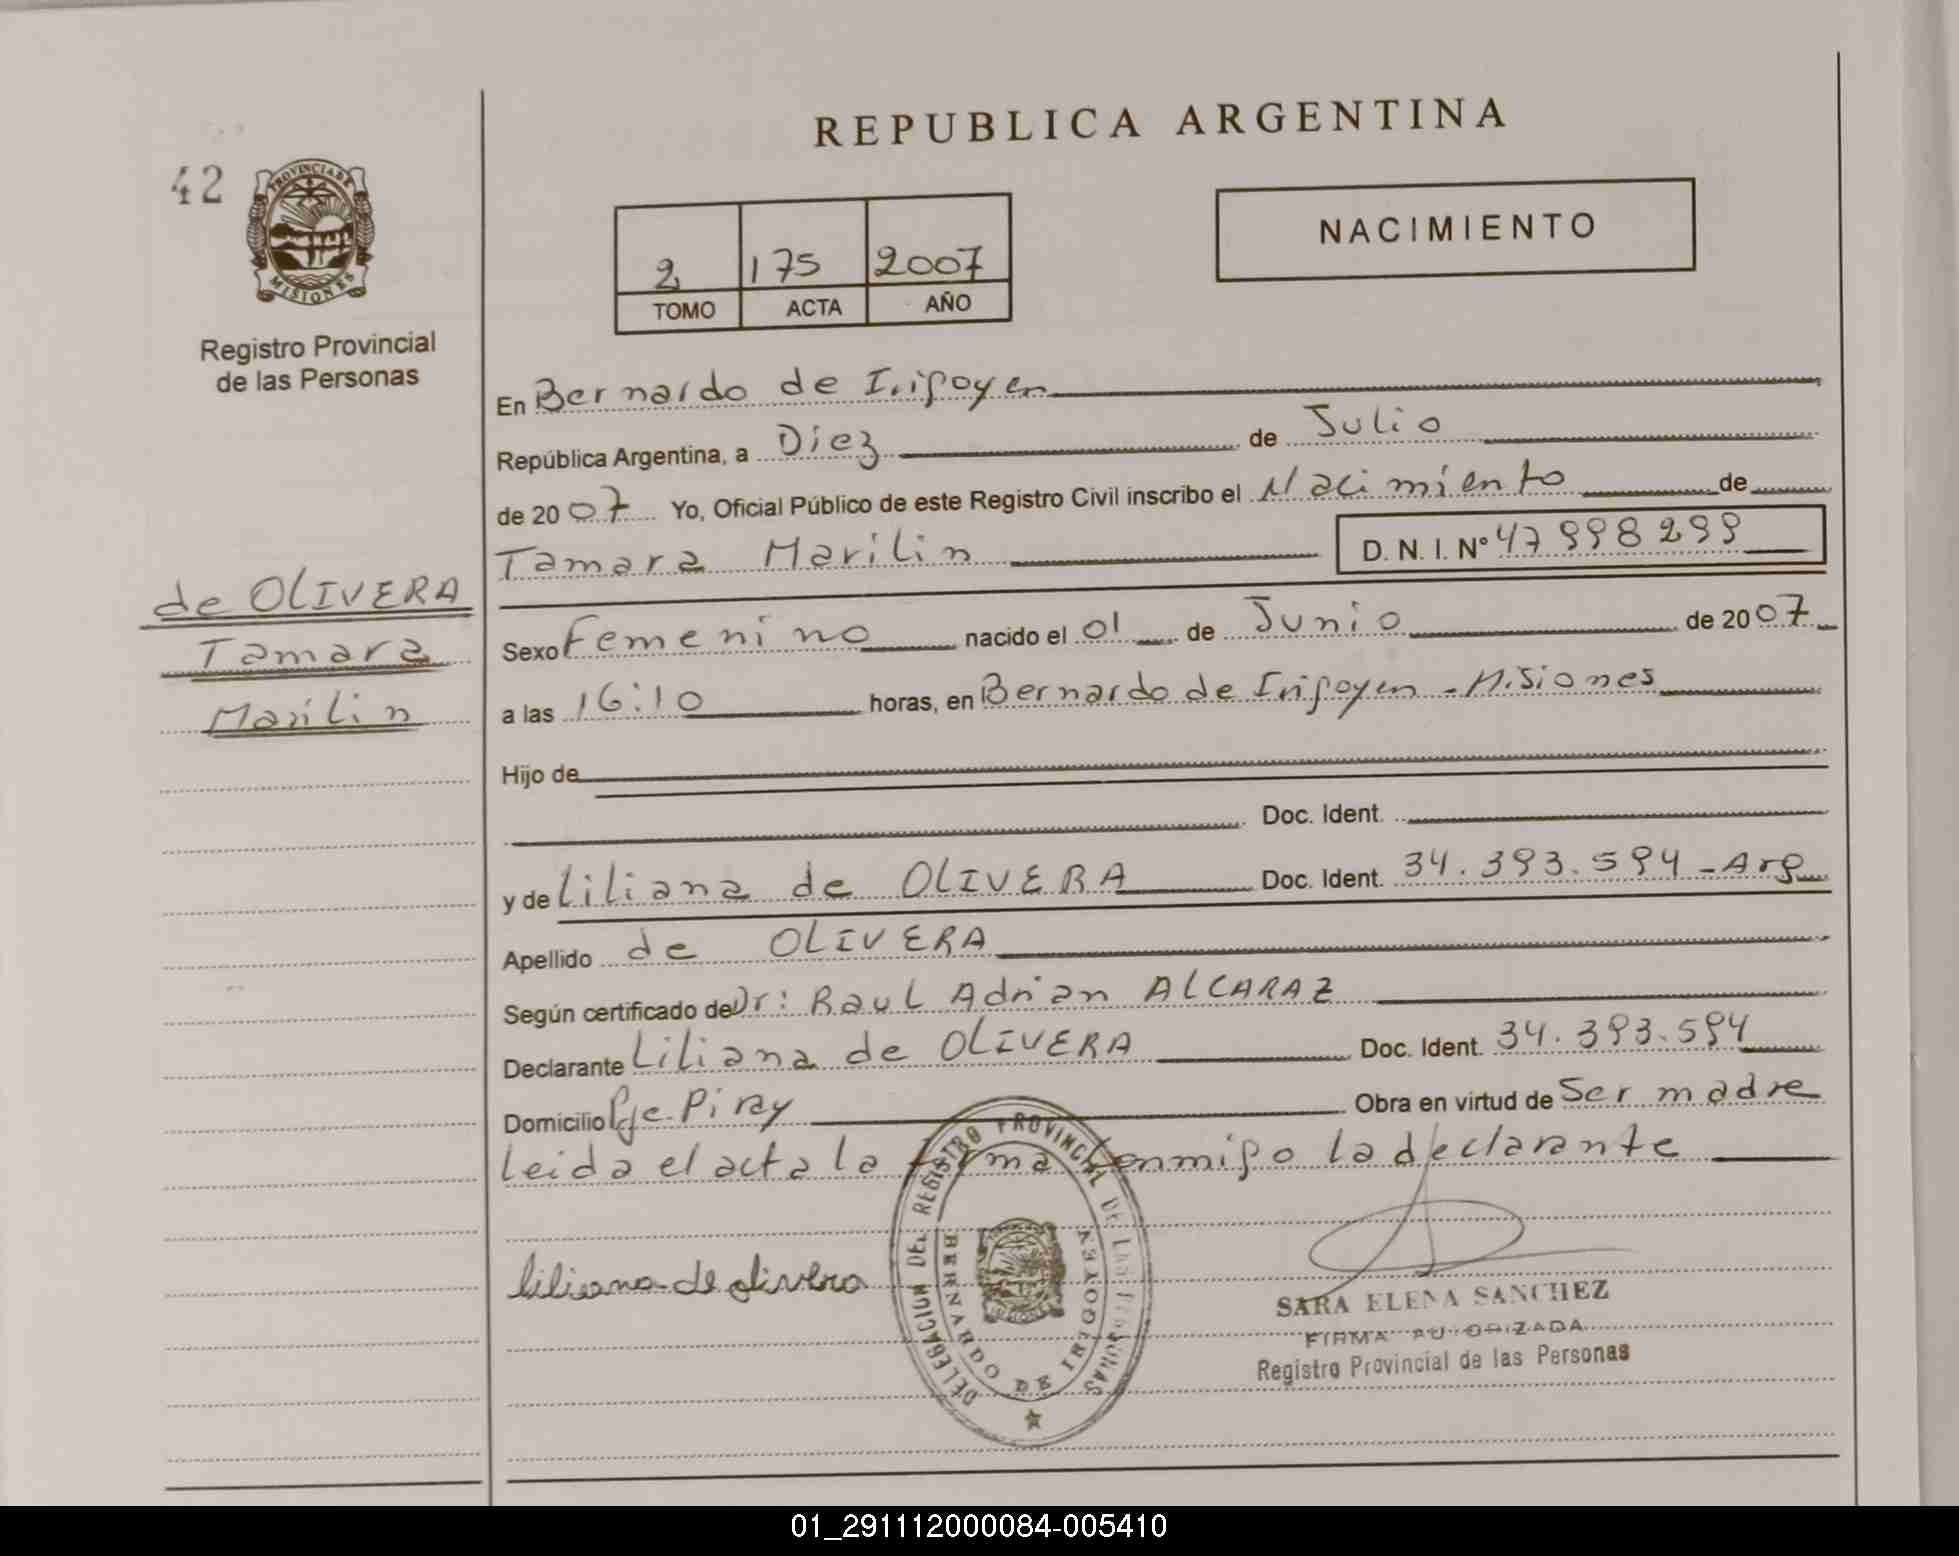 REPUBLICA ARGENTINA
42
PROVINCIA DE
MISIONES
Registro Provincial
de las Personas
NACIMIENTO
2 175 2007
TOMO ACTA AÑO
En Bernardo de Irigoyen
República Argentina, a Diez de Julio
de 2007 Yo, Oficial Público de este Registro Civil inscribo el Nacimiento de
Tamara Marilin D. N. I. Nº 47998299
de OLIVERA
Tamara
Marilin
Sexo Femenino nacido el 01 de Junio de 2007
a las 16:10 horas, en Bernardo de Irigoyen - Misiones
Hijo de
Doc. Ident.
y de Liliana de OLIVERA Doc. Ident. 34.393.594 - Arg
Apellido de OLIVERA
Según certificado de Dr: Raul Adrian ALCARAZ
Declarante Liliana de OLIVERA Doc. Ident. 34.393.594
Domicilio Pje. Piray Obra en virtud de Ser madre
Leida el acta la firma conmigo la declarante
liliana de olivera
DELEGACION DEL REGISTRO PROVINCIAL DE LAS PERSONAS
BERNARDO DE IRIGOYEN
SARA ELENA SANCHEZ
FIRMA AUTORIZADA
Registro Provincial de las Personas
01_291112000084-005410